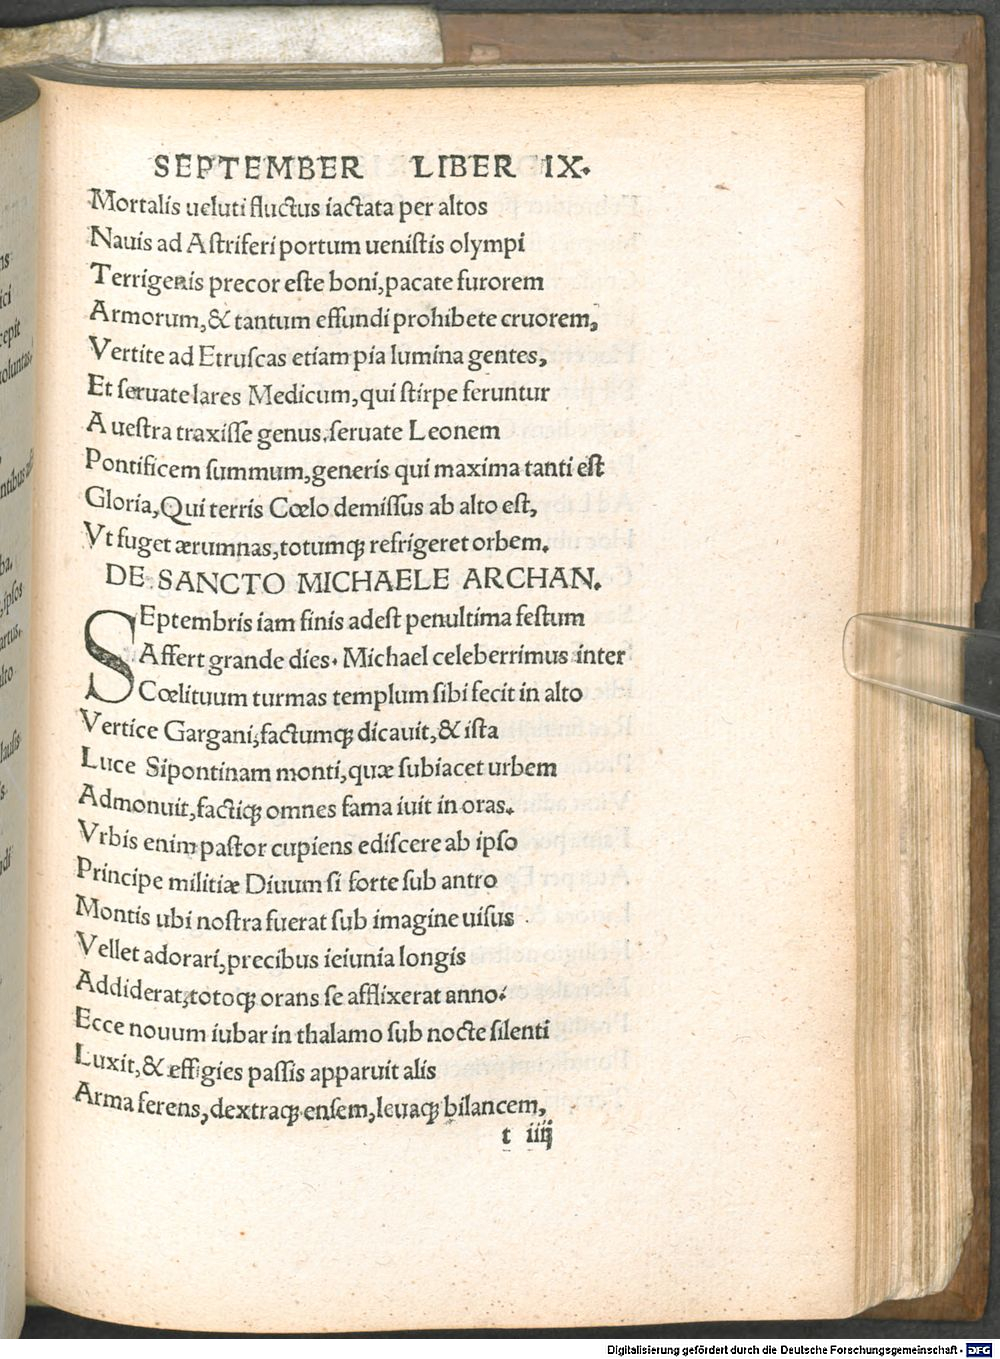 SEPTEMBER LIBER IX.
Mortalis ueluti fluctus iactata per altos
Nauis ad Astriferi portum uenistis olympi
Terrigenis precor este boni, pacate furorem
Armorum, & tantum effundi prohibete cruorem,
Vertite ad Etruscas etiam pia lumina gentes,
Et seruate lares Medicum, qui stirpe feruntur
A uestra traxisse genus, seruate Leonem
Pontificem summum, generis qui maxima tanti est
Gloria, Qui terris Cœlo demissus ab alto est,
Vt fuget ærumnas, totumꝗ refrigeret orbem.
DE SANCTO MICHAELE ARCHAN.
SEptembris iam finis adest penultima festum
Affert grande dies. Michael celeberrimus inter
Cœlituum turmas templum sibi fecit in alto
Vertice Gargani, factumꝗ dicauit, & ista
Luce Sipontinam monti, quæ subiacet urbem
Admonuit, factiꝗ omnes fama iuit in oras.
Vrbis enim pastor cupiens ediscere ab ipso
Principe militiæ Diuum si forte sub antro
Montis ubi nostra fuerat sub imagine uisus
Vellet adorari, precibus ieiunia longis
Addiderat, totoꝗ orans se afflixerat anno:
Ecce nouum iubar in thalamo sub nocte silenti
Luxit, & effigies passis apparuit alis
Arma ferens, dextraꝗ ensem, leuaꝗ bilancem,
t iiij
Digitalisierung gefördert durch die Deutsche Forschungsgemeinschaft - DFG